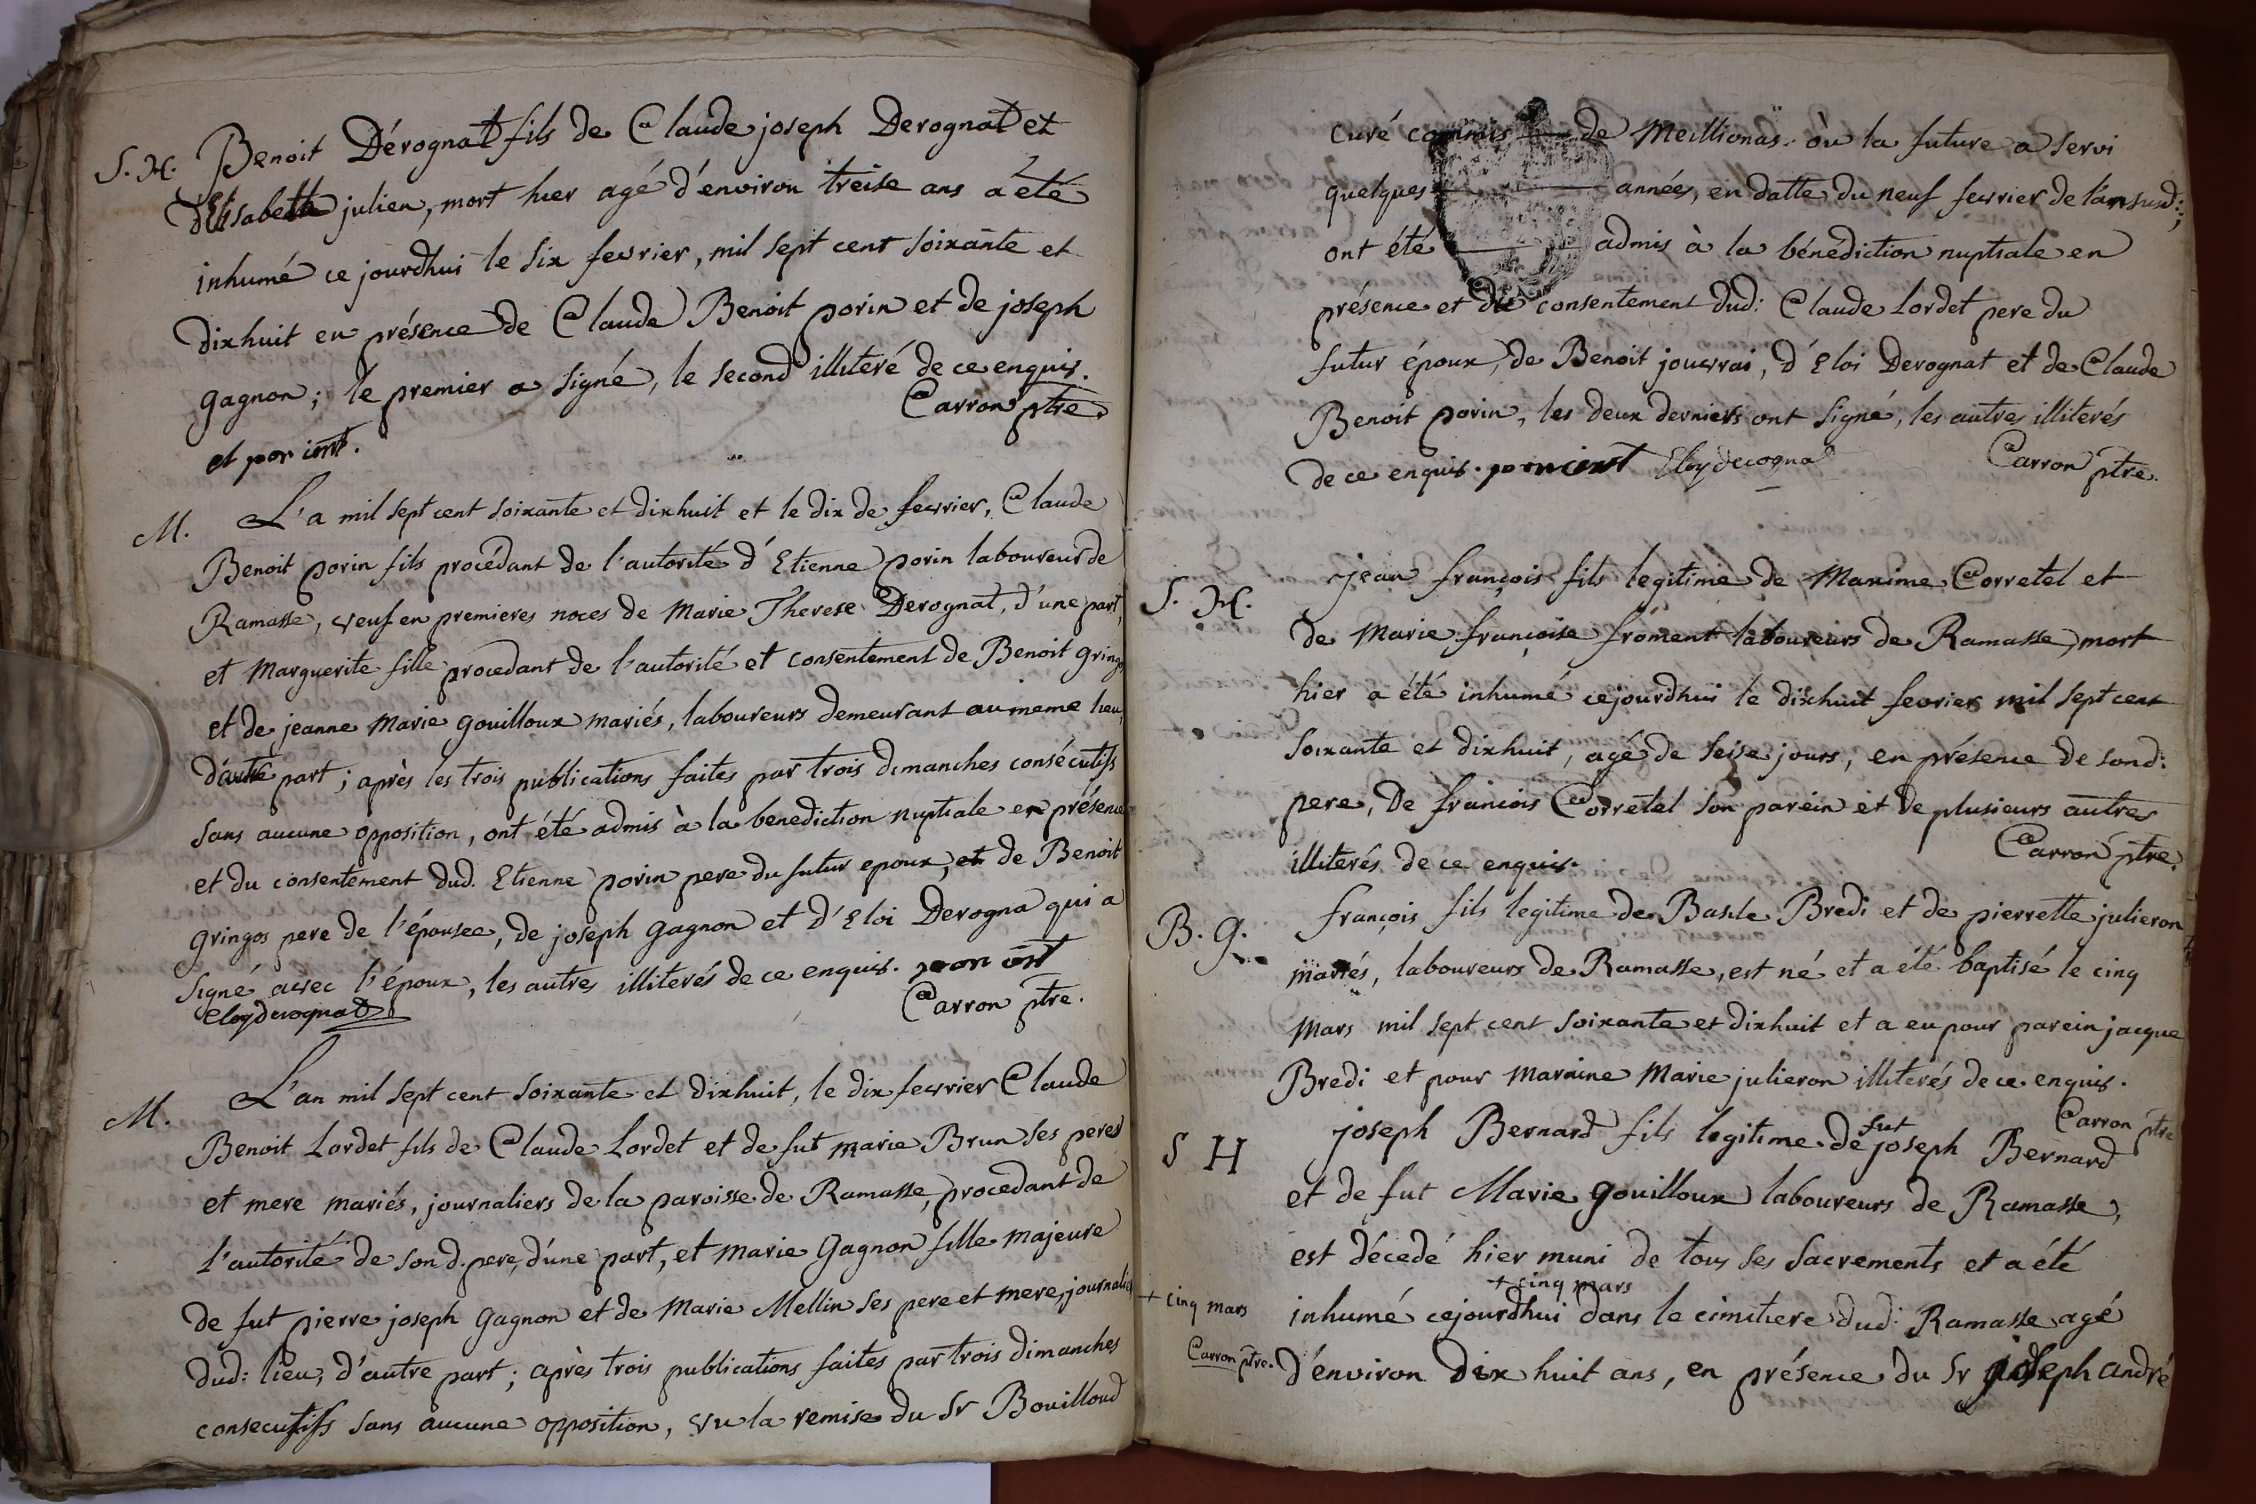 S. H. Benoit Dérognat fils de Claude joseph Derognat et
d'Elisabeth julien, mort hier agé d'environ treise ans a été
inhumé ce jourdhui le six fevrier, mil sept cent soixante et
dixhuit en présence de Claude Benoit porin et de joseph
gagnon; le premier a signé, le second illiteré de ce enquis.
Carron ptre.
et
M. L'a mil sept cent soixante et dixhuit et le dix de fevrier, Claude
Benoit porin fils procédant de l'autorité d'Etienne porin laboureur de
Ramasse, veuf en premieres noces de Marie Therese Derognat, d'une part,
et Marguerite fille procedant de l'autorité et consentement de Benoit gringos
et de jeanne Marie gouilloux mariés, laboureurs demeurant au meme lieu,
d'autre part; après les trois publications faites par trois dimanches consécutifs
sans aucune opposition, ont été admis à la benediction nuptiale en présence
et du consentement dud. Etienne porin pere du futur epoux, et de Benoit
gringos pere de l'épousee, de joseph gagnon et d'Eloi Derogna qui a
signé avec l'époux, les autres illiterés de ce enquis.
eloy derognat
Carron ptre.
M. L'an mil sept cent soixante et dixhuit, le dix fevrier Claude
Benoit Lordet fils de Claude Lordet et de fut marie Brun ses peres
et mere mariés, journaliers de la paroisse de Ramasse, procedant de
l'autorité de son d. pere, d'une part, et marie gagnon fille majeure
de fut pierre joseph gagnon et de Marie Mellin ses pere et mere, journaliers
dud: lieu, d'autre part; après trois publications faites par trois dimanches
consecutifs sans aucune opposition, vu la remise du Sr Bouilloud
curé commis de Meillionas. où la future a servi
quelques années, en datte du neuf fevrier de l'an susd:,
ont été admis à la bénédiction nuptiale en
présence et du consentement dud: Claude Lordet pere du
futur époux, de Benoit jouvrai, d'Eloi Derognat et de Claude
Benoit porin, les deux derniers ont signé, les autres illiterés
de ce enquis. Eloy decogna
Carron ptre.
S. H. jean françois fils legitime de Maxime Corretel et
de Marie françoise froment laboureurs de Ramasse, mort
hier a été inhumé cejourdhui le dixhuit fevrier mil sept cent
soixante et dixhuit, agé de seise jours, en présence de sond:
pere, de francois Corretel son parein et de plusieurs autres
illiterés de ce enquis.
Carron ptre.
B. G. françois fils legitime de Basile Bredi et de pierrette julieron
mariés, laboureurs de Ramasse, est né et a été baptisé le cinq
Mars mil sept cent soixante et dixhuit et a eu pour parein jacque
Bredi et pour maraine Marie julieron illiterés de ce enquis.
Carron ptre
S H joseph Bernard fils legitime de fut joseph Bernard
et de fut Marie gouilloux laboureurs de Ramasse,
est décedé hier muni de tous ses sacrements et a été
+ cinq mars
inhumé cejourdhui dans le cimitiere dud: Ramasse agé
+ cinq mars
Carron ptre.
d'environ dix huit ans, en présence du Sr joseph andré